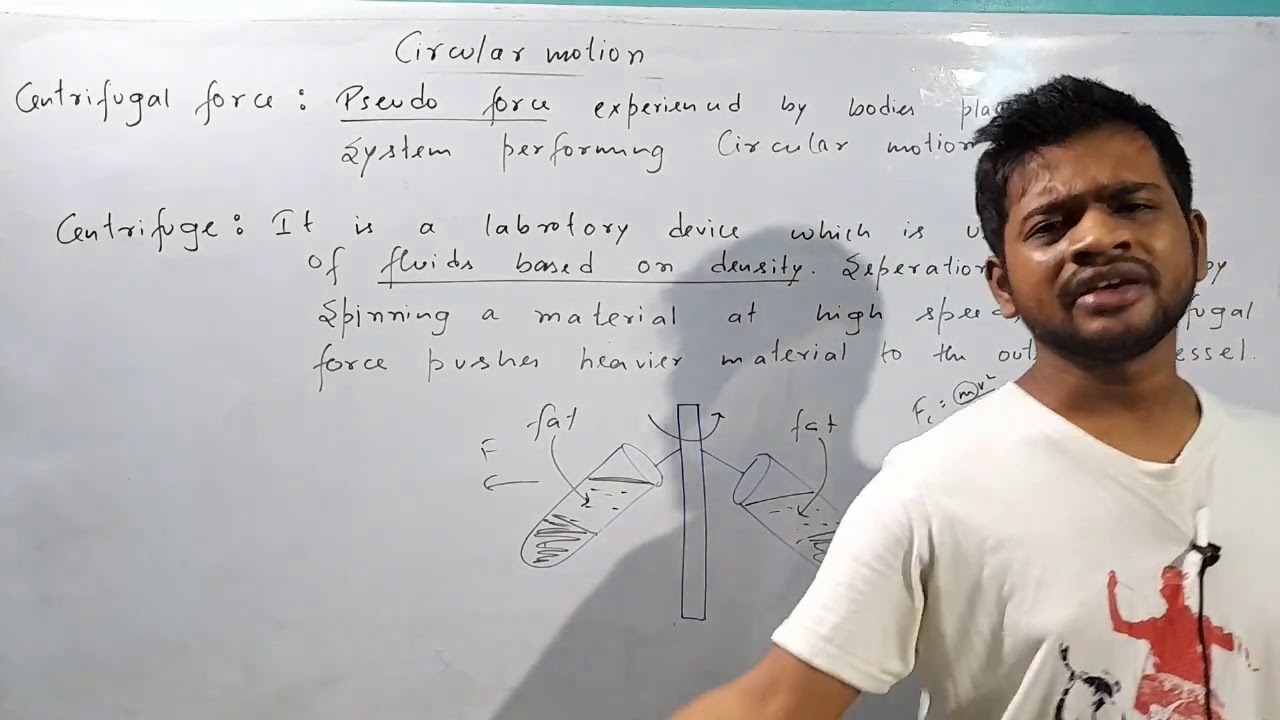 Circular motion
Centrifugal force : Pseudo force experienced by bodies
System performing Circular motion
Centrifuge : It is a labrotory device which is
of fluids based on density. Seperation by
Spinning a material at high
force pushes heavier material to the
F fat fat